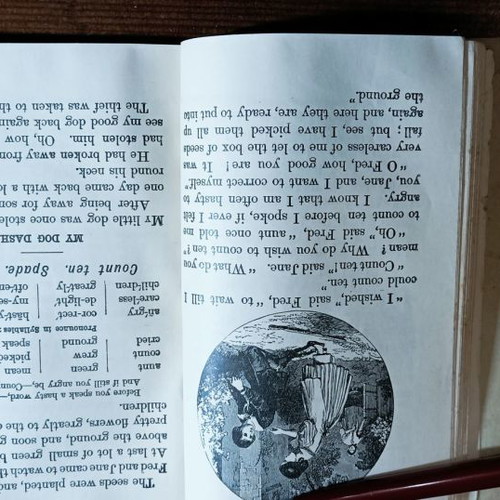 "I wished," said Fred, "to wait till I
could count ten."
"Count ten!" said Jane. "What do you
mean? Why do you wish to count ten?"
"Oh," said Fred, "aunt once told me
to count ten before I spoke, if ever I felt
angry. I know that I am often hasty to
you, Jane, and I want to correct myself."
"O Fred, how good you are! It was
very careless of me to let the box of seeds
fall; but see, I have picked them all up
again, and here they are, ready to put into
the ground."
The seeds were planted, and
Fred and Jane came to watch th
At last a lot of small green b
above the ground, and soon g
pretty flowers, greatly to the
children.
Before you speak a hasty word,—
And if still you angry be,—Coun
aunt green mean
count grew picked
cried ground speak
Pronounce in Syllables
an'gry cor-rect' hast'y
care-less de-light' my-se
children great-ly oft-en
Count ten. Spade.
MY DOG DASH
My little dog was once stole
After being away for som
one day came back with a lo
round his neck.
He had broken away from
had stolen him. Oh, how
see my good dog back again
The thief was taken to th